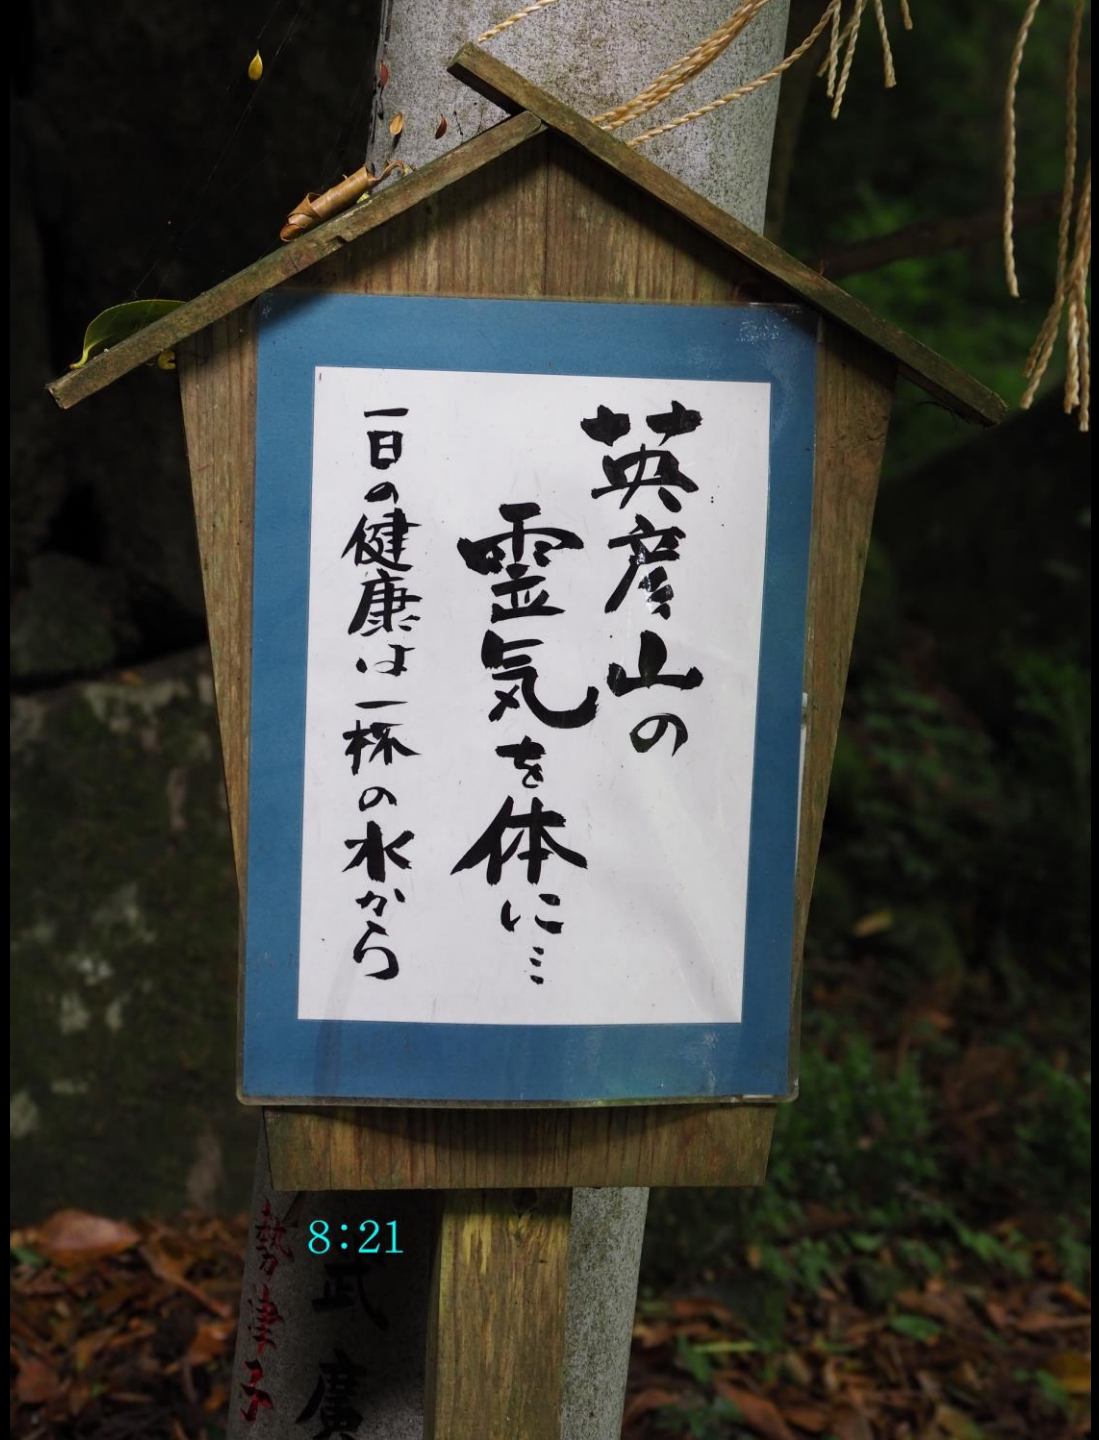 英彦山の
霊気を体に…
一日の健康は一杯の水から
8:21
武廣
勢津子